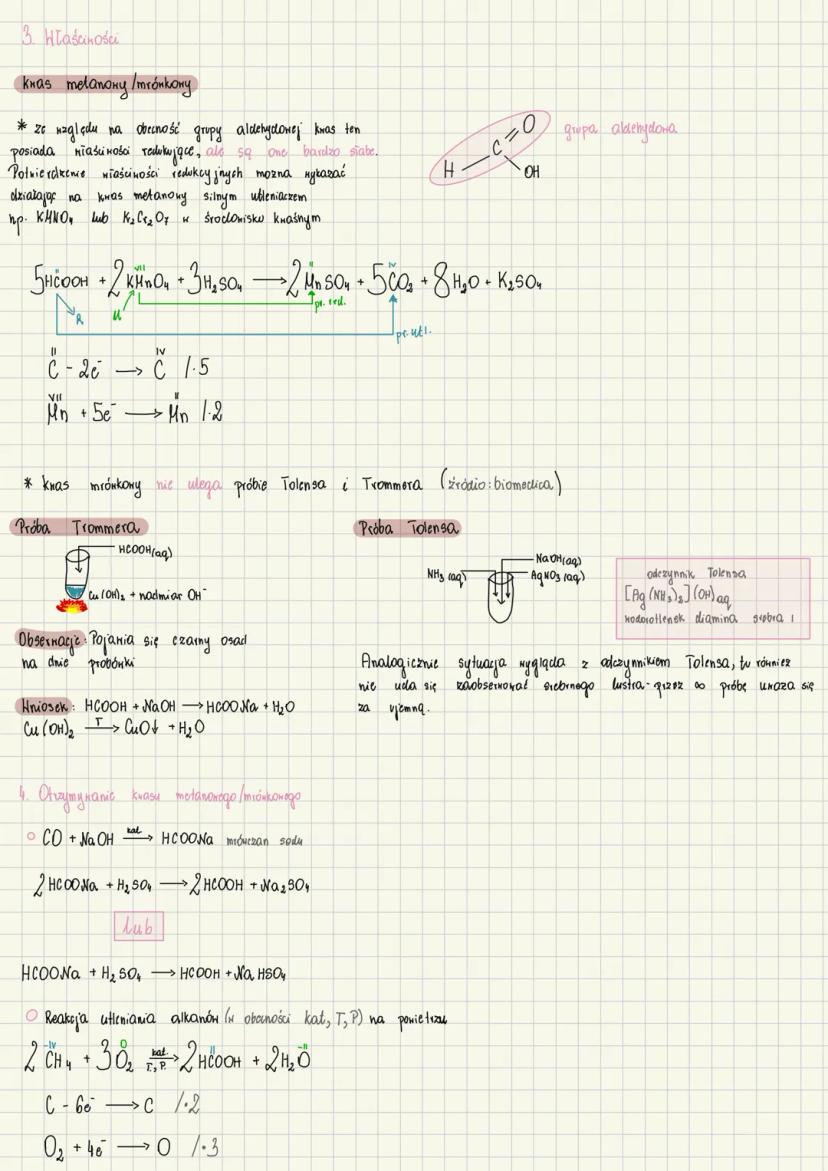 3. Właściwości
kwas metanowy/mrówkowy
* ze względu na obecność grupy aldehydowej kwas ten
posiada właściwości redukujące, ale są one bardzo słabe.
Potwierdzenie właściwości redukcyjnych można wykazać
działając na kwas metanowy silnym utleniaczem
np. KMNO₄ lub K₂Cr₂O₇ w środowisku kwaśnym
H C O OH
grupa aldehydowa
II VII II IV
5HCOOH + 2KMnO₄ + 3H₂SO₄ ⟶ 2MnSO₄ + 5CO₂ + 8H₂O + K₂SO₄
R U pr. red.
pr. utl.
II IV
C - 2e⁻ ⟶ C /·5
VII II
Mn + 5e⁻ ⟶ Mn /·2
* kwas mrówkowy nie ulega próbie Tolensa i Trommera (źródło: biomedica)
Próba Trommera
HCOOH(aq)
Cu(OH)₂ + nadmiar OH⁻
Obserwacje: Pojawia się czarny osad
na dnie probówki
Wniosek: HCOOH + NaOH ⟶ HCOONa + H₂O
Cu(OH)₂ T⟶ CuO↓ + H₂O
Próba Tolensa
NH₃ (aq)
NaOH(aq)
AgNO₃ (aq)
odczynnik Tolensa
[Ag(NH₃)₂](OH)aq
wodorotlenek diamina srebra I
Analogicznie sytuacja wygląda z odczynnikiem Tolensa, tu również
nie uda się zaobserwować srebrnego lustra - przez co próbę uważa się
za ujemną.
4. Otrzymywanie kwasu metanowego/mrówkowego
○ CO + NaOH kat.⟶ HCOONa mrówczan sodu
2HCOONa + H₂SO₄ ⟶ 2HCOOH + Na₂SO₄
lub
HCOONa + H₂SO₄ ⟶ HCOOH + NaHSO₄
○ Reakcja utleniania alkanów (w obecności kat, T, P) na powietrzu
-IV O II -II
2CH₄ + 3O₂ kat. T, P.⟶ 2HCOOH + 2H₂O
C - 6e⁻ ⟶ C /·2
O₂ + 4e⁻ ⟶ O /·3